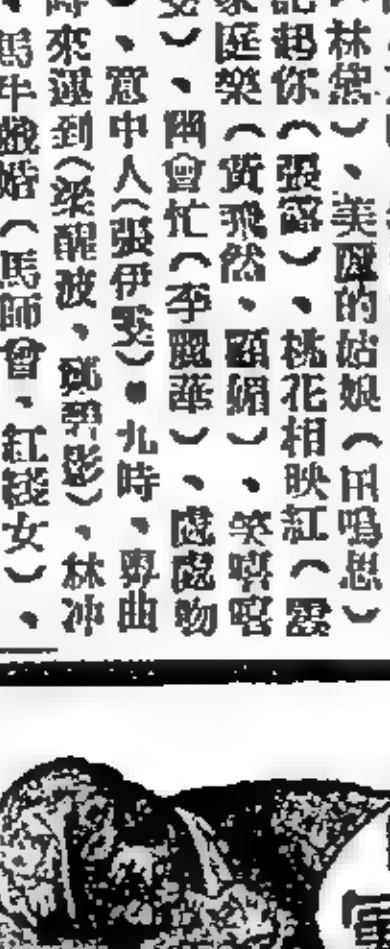 林黛）、美麗的姑娘（田鳴恩）
起你（張露）、桃花相映紅（露
庭樂（黃飛然、顧媚）、笑嘻嘻
）、幽會忙（李麗華）、處處吻
、意中人（張伊雯）●九時、粵曲
來運到（梁醒波、鄧碧影）、林冲
馬牛戲婚（馬師曾、紅綫女）、